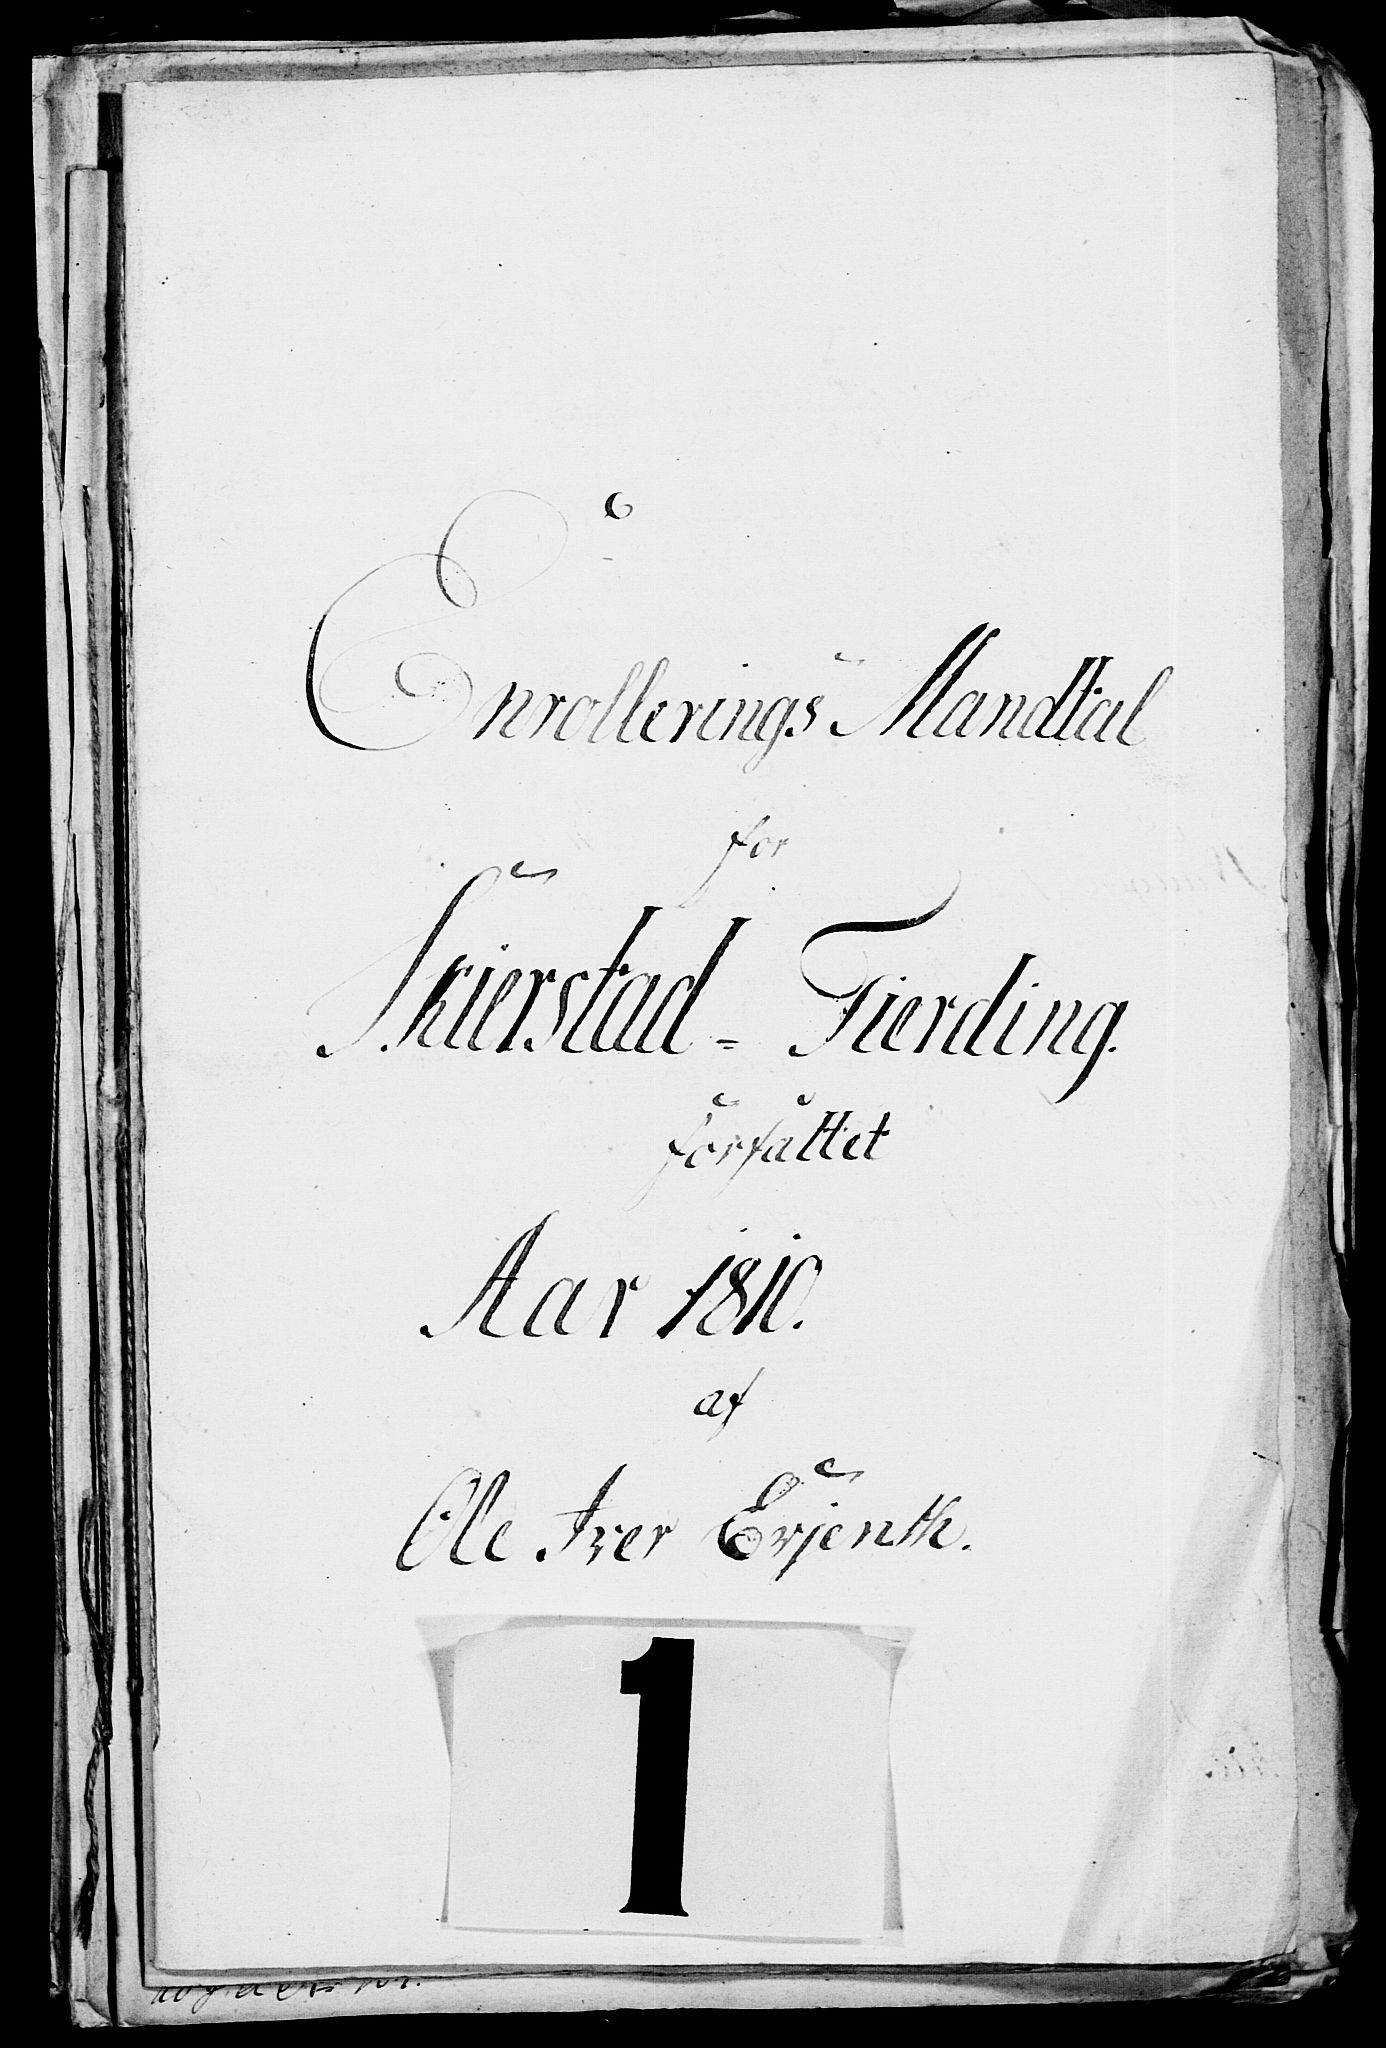 Enrollerings Mandtal
for
Skierstad = Fierding.
forfattet
Aar 1810.
af
Ole Iver Erjenth.
1